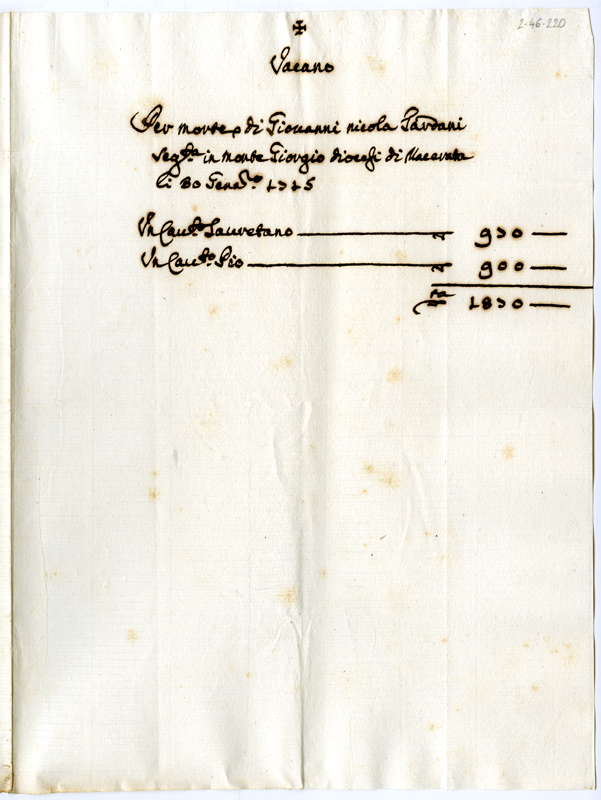 2-46-220
✠
Vacano
Per morte di Giovanni nicola
segta in monte Giorgio diocesi di Macerata
li 30 Gennro 1715
Vn Caualto Lauretano 970
Vn Caualto Pio 900
1870